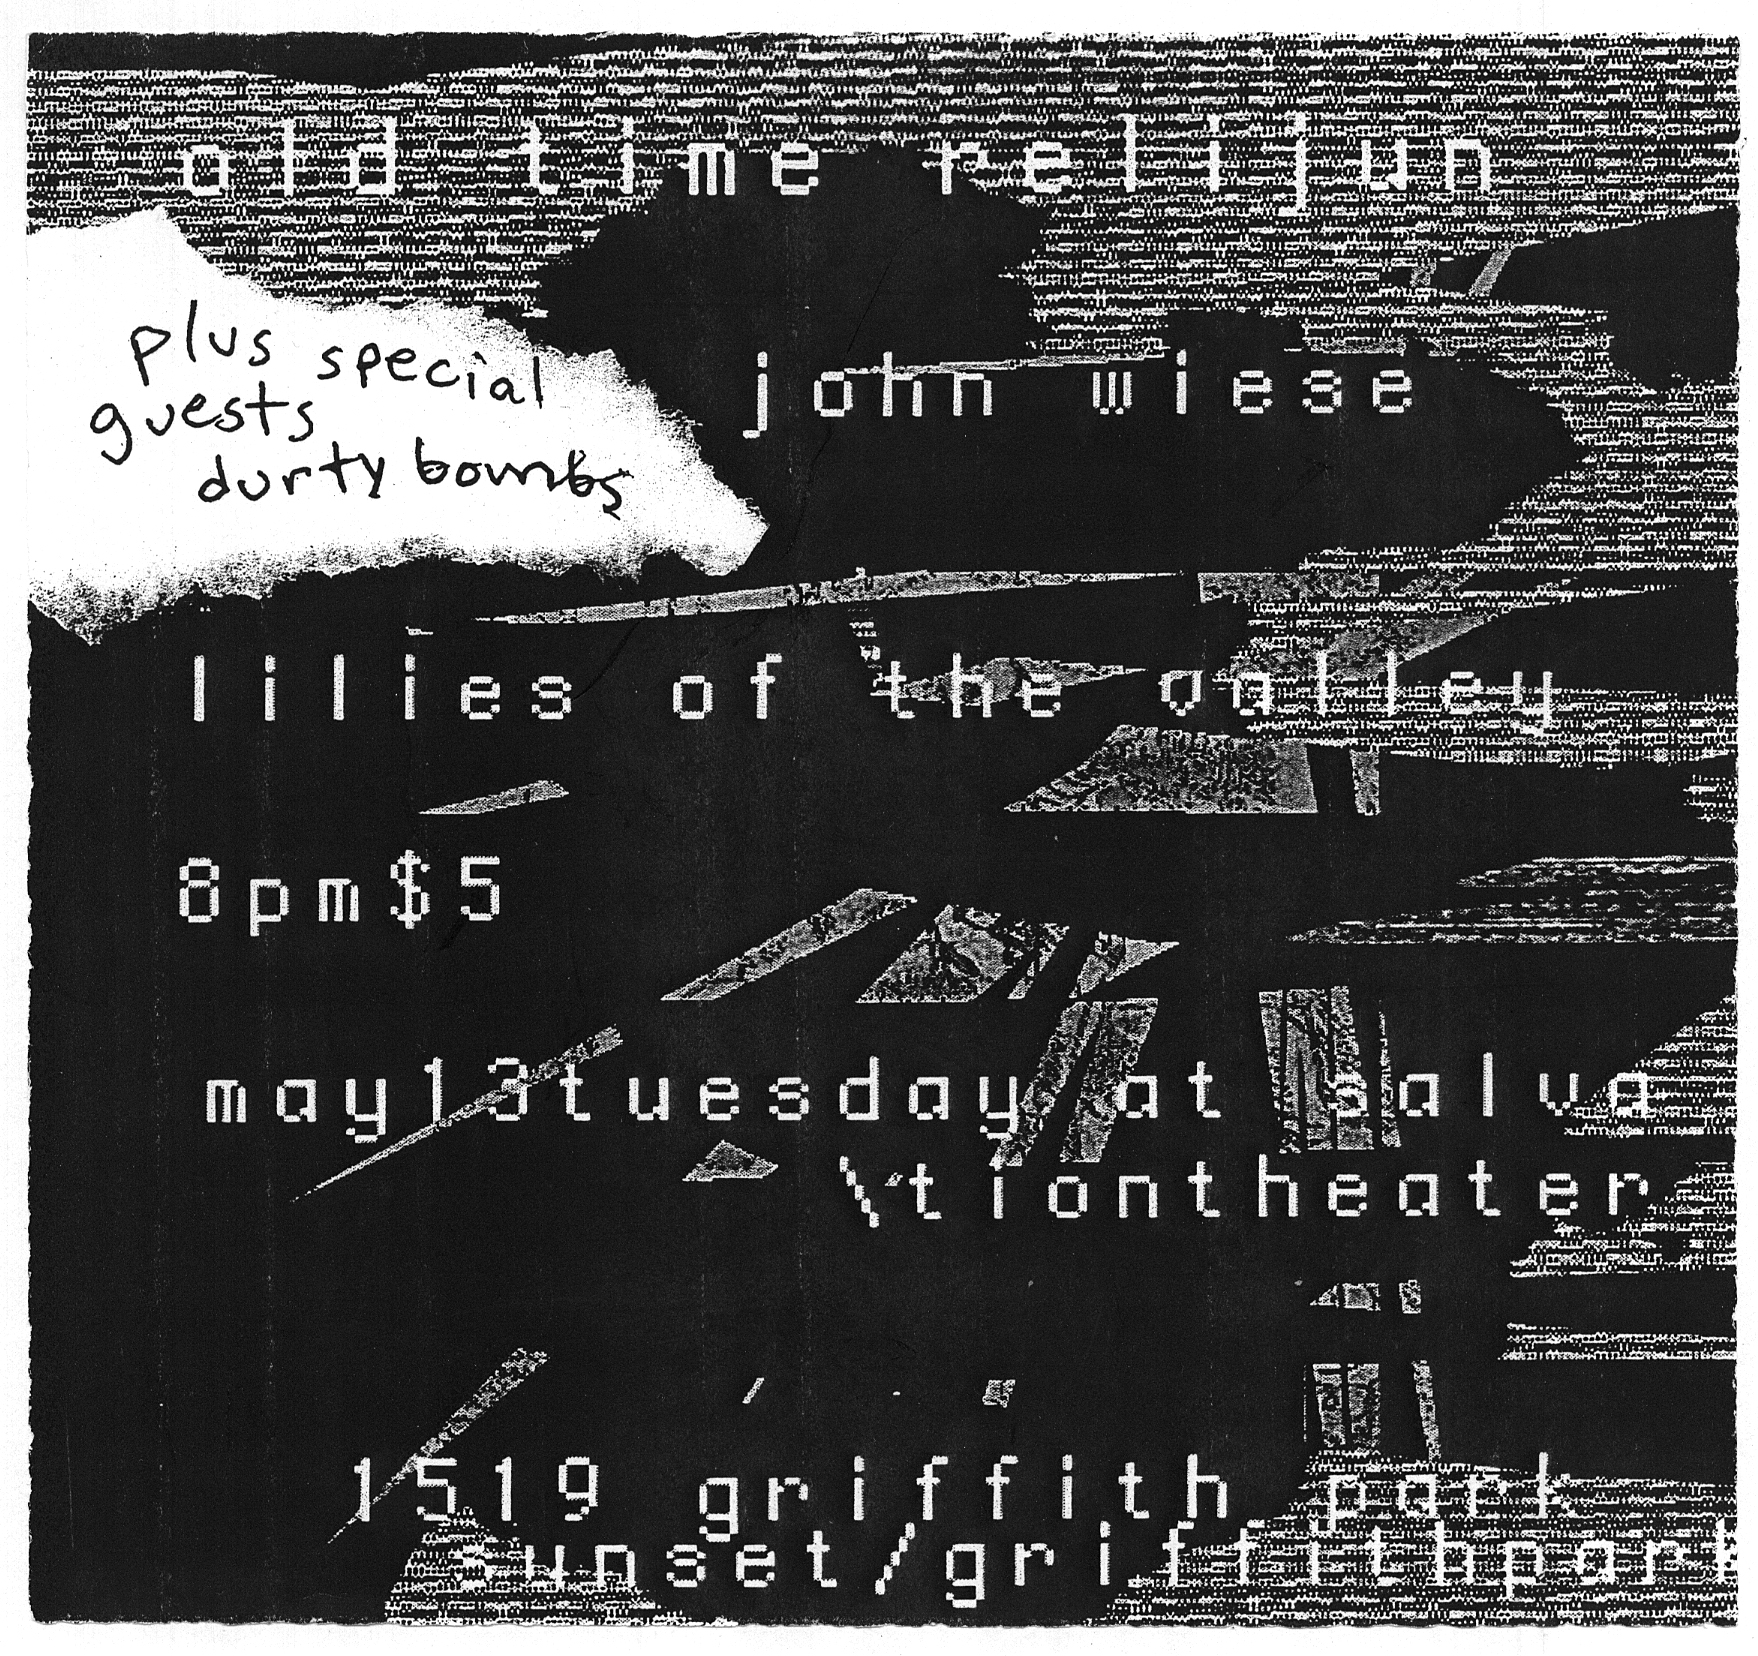 old time relijun
plus special
guests
durty bombs
john wiese
lilies of the valley
8pm$5
may13tuesday at salva
\tiontheater
1519 griffith park
sunset/griffithpark